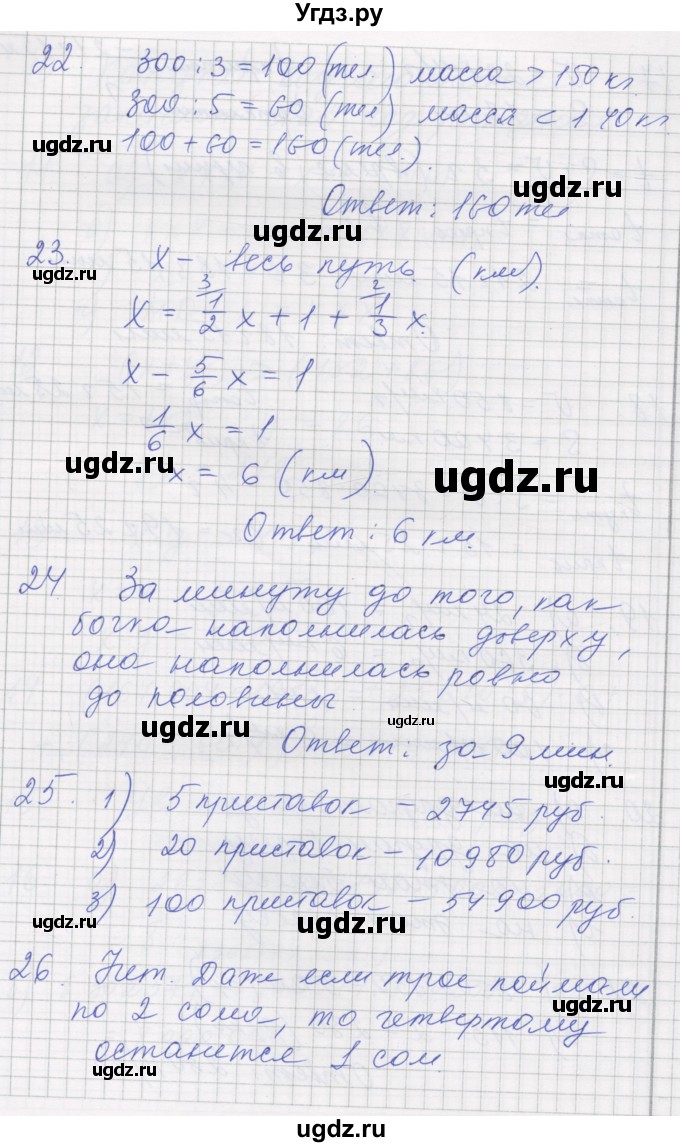 Угдз.ру
22. 300 : 3 = 100 (тел.) масса > 150 кг
300 : 5 = 60 (тел) масса < 140 кг
100 + 60 = 160 (тел.).
ugdz.ru
ugdz.ru
Ответ: 160 тел
ugdz.ru
23. x – весь путь. (км).
ugdz.ru
x = 1/2 x + 1 + 1/3 x.
3 2
x – 5/6 x = 1
1/6 x = 1
ugdz.ru
x = 6 (км)
ugdz.ru
Ответ: 6 км.
24 За минуту до того, как
бочка наполнилась доверху,
она наполнилась ровно
до половины
ugdz.ru
ugdz.ru
Ответ: за 9 мин.
ugdz.ru
25. 1) 5 приставок – 2745 руб.
2) 20 приставок – 10980 руб.
ugdz.ru
3) 100 приставок – 54900 руб.
ugdz.ru
ugdz.ru
26. Нет. Даже если трое поймали
по 2 сома, то четвертому
ugdz.ru
останется 1 сом.
ugdz.ru
ugdz.ru